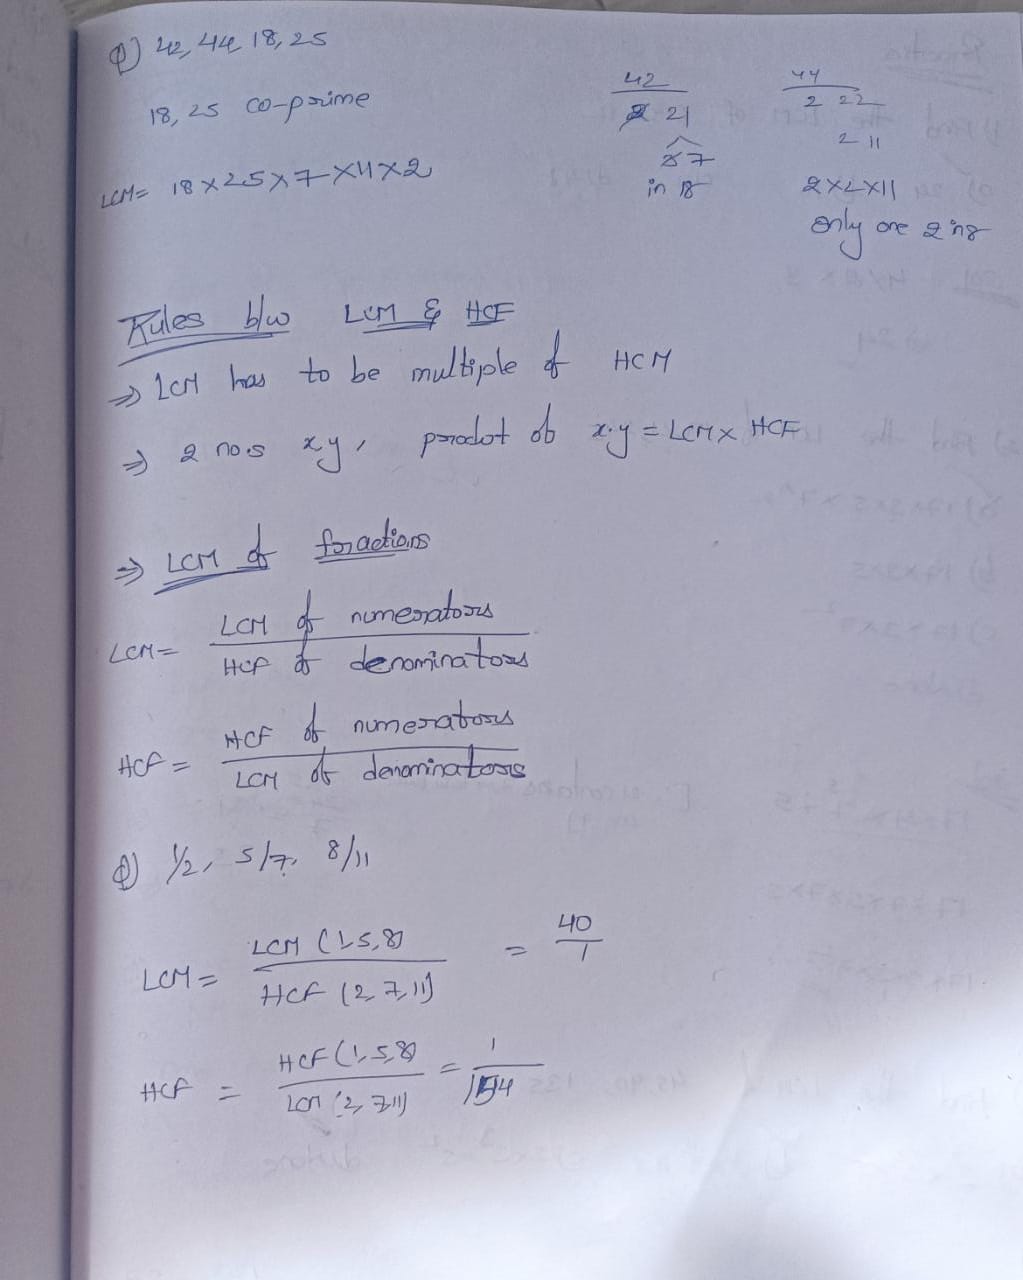 Q) 42, 44, 18, 25
18, 25 co-prime
LCM= 18×25×7×11×2
42
2 21
3 7
in 18
44
2 22
2 11
2×2×11
only one 2 in 18
Rules b/w LCM & HCF
⇒ LCM has to be multiple of HCM
⇒ 2 nos x,y, prodct of x.y = LCM x HCF
⇒ LCM of fractions
LCM= LCM of numerators
HCF of denominators
HCF = HCF of numerators
LCM of denominators
Q) 1/2, 5/7, 8/11
LCM= LCM (1,5,8) = 40
HCF (2,7,11) 1
HCF = HCF (1,5,8) = 1
LCM (2,7,11) 154